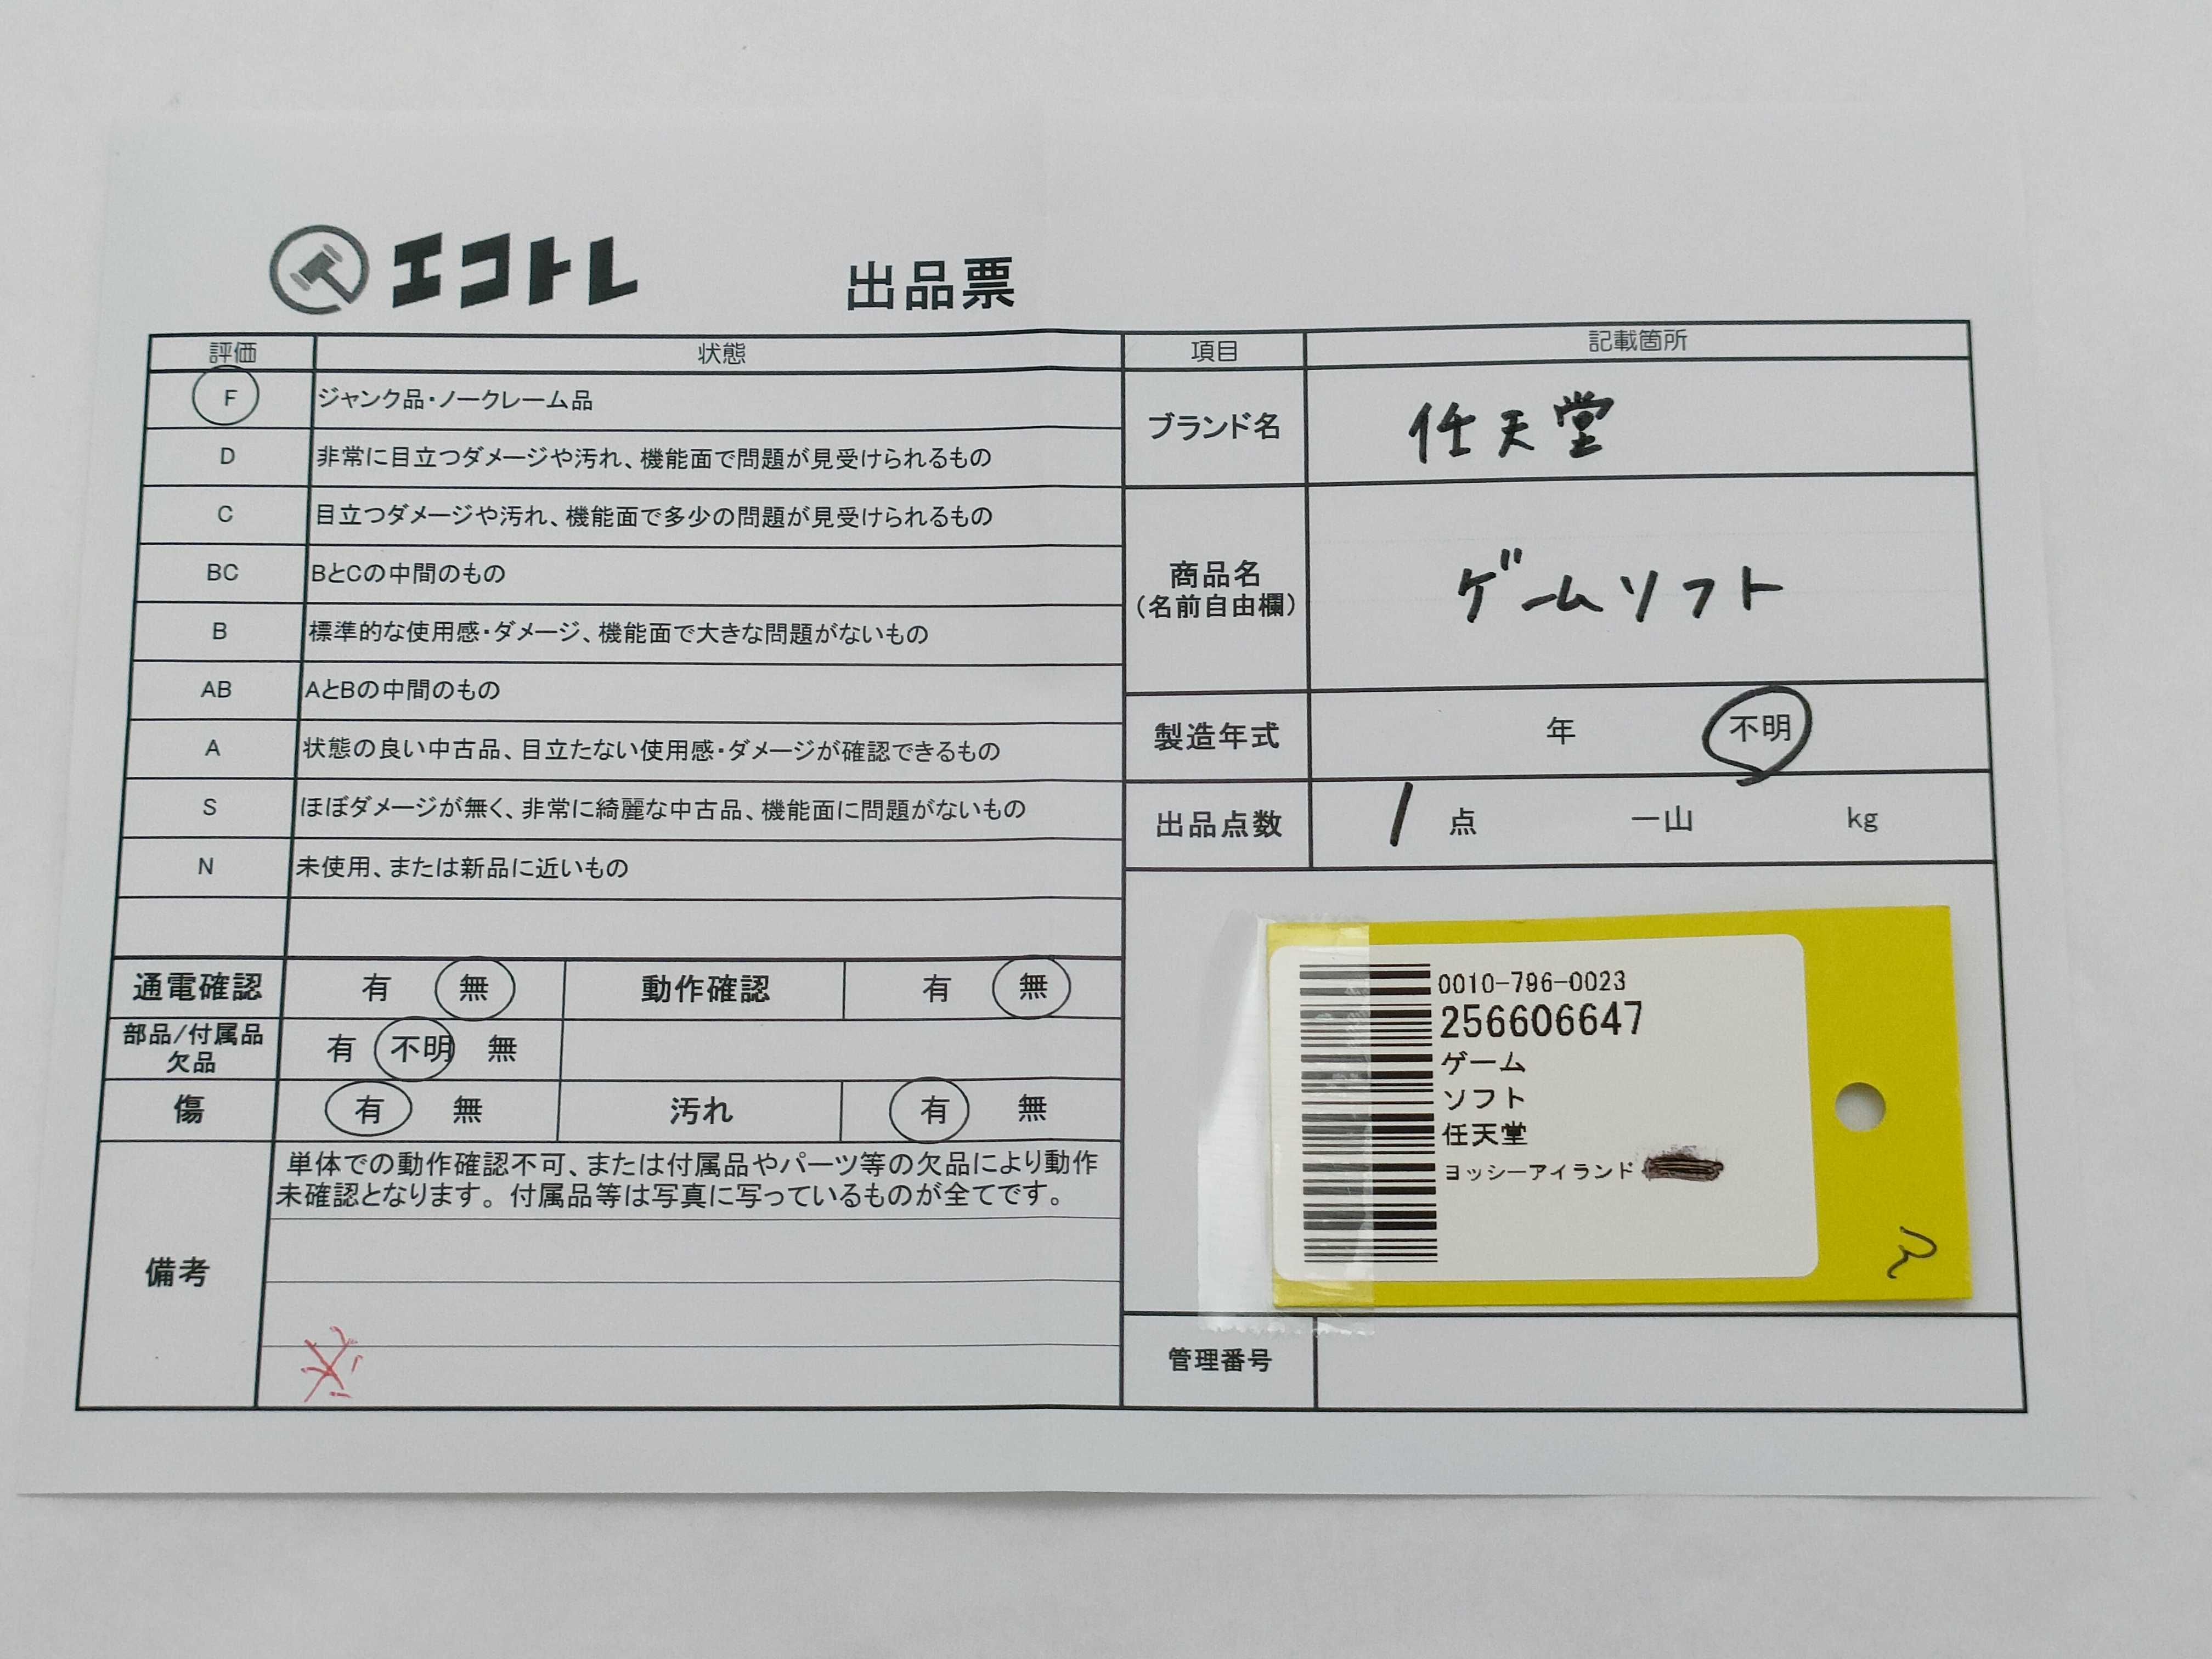 エコトレ 出品票
評価 状態
F ジャンク品・ノークレーム品
D 非常に目立つダメージや汚れ、機能面で問題が見受けられるもの
C 目立つダメージや汚れ、機能面で多少の問題が見受けられるもの
BC BとCの中間のもの
B 標準的な使用感・ダメージ、機能面で大きな問題がないもの
AB AとBの中間のもの
A 状態の良い中古品、目立たない使用感・ダメージが確認できるもの
S ほぼダメージが無く、非常に綺麗な中古品、機能面に問題がないもの
N 未使用、または新品に近いもの
通電確認 有 無 動作確認 有 無
部品/付属品
欠品 有 不明 無
傷 有 無 汚れ 有 無
備考
単体での動作確認不可、または付属品やパーツ等の欠品により動作
未確認となります。付属品等は写真に写っているものが全てです。
項目 記載箇所
ブランド名 任天堂
商品名
(名前自由欄)
ゲームソフト
製造年式 年 不明
出品点数 1 点 一山 kg
0010-796-0023
256606647
ゲーム
ソフト
任天堂
ヨッシーアイランド
管理番号